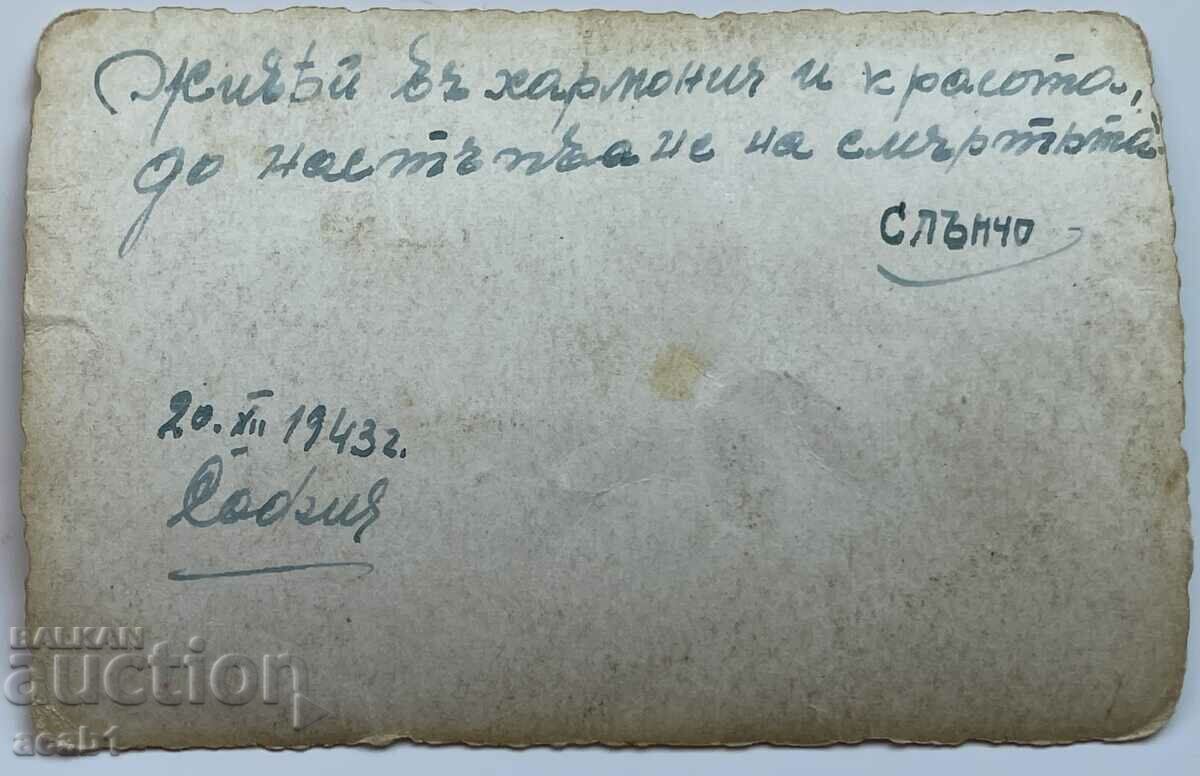 Живѣй въ хармония и красота,
до настъпване на смъртьта
Слънчо
20.XII 1943 г.
София
BALKAN
auction
acsb1